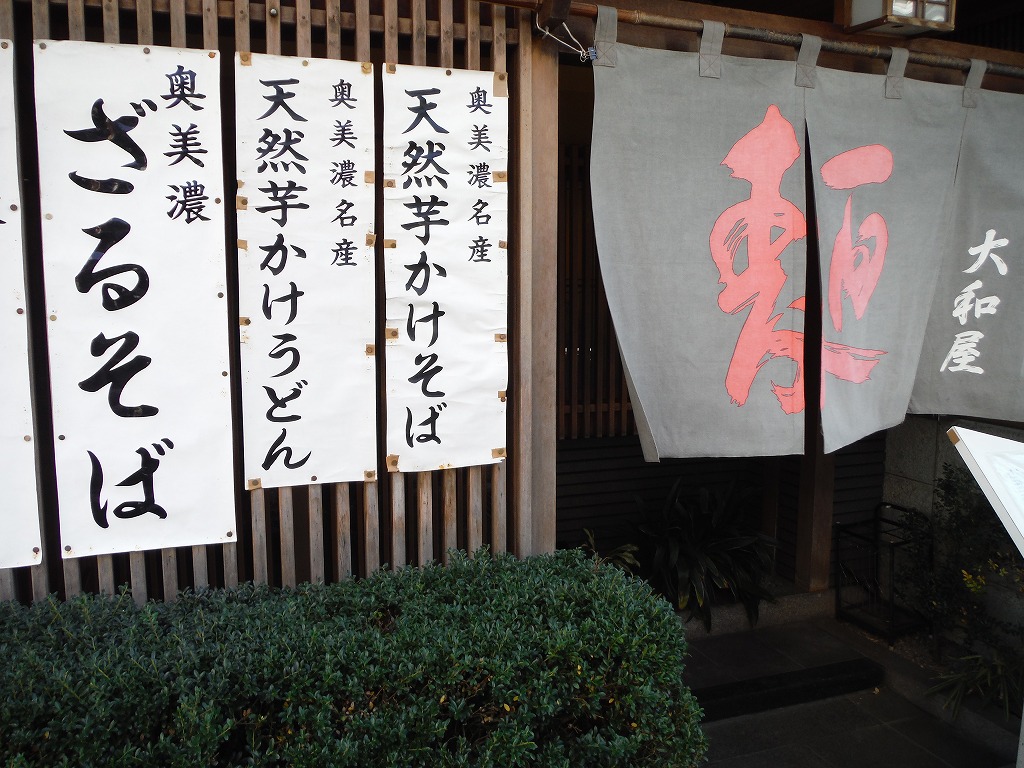 大和屋
奥美濃名産
天然芋かけそば
奥美濃名産
天然芋かけうどん
奥美濃
ざるそば